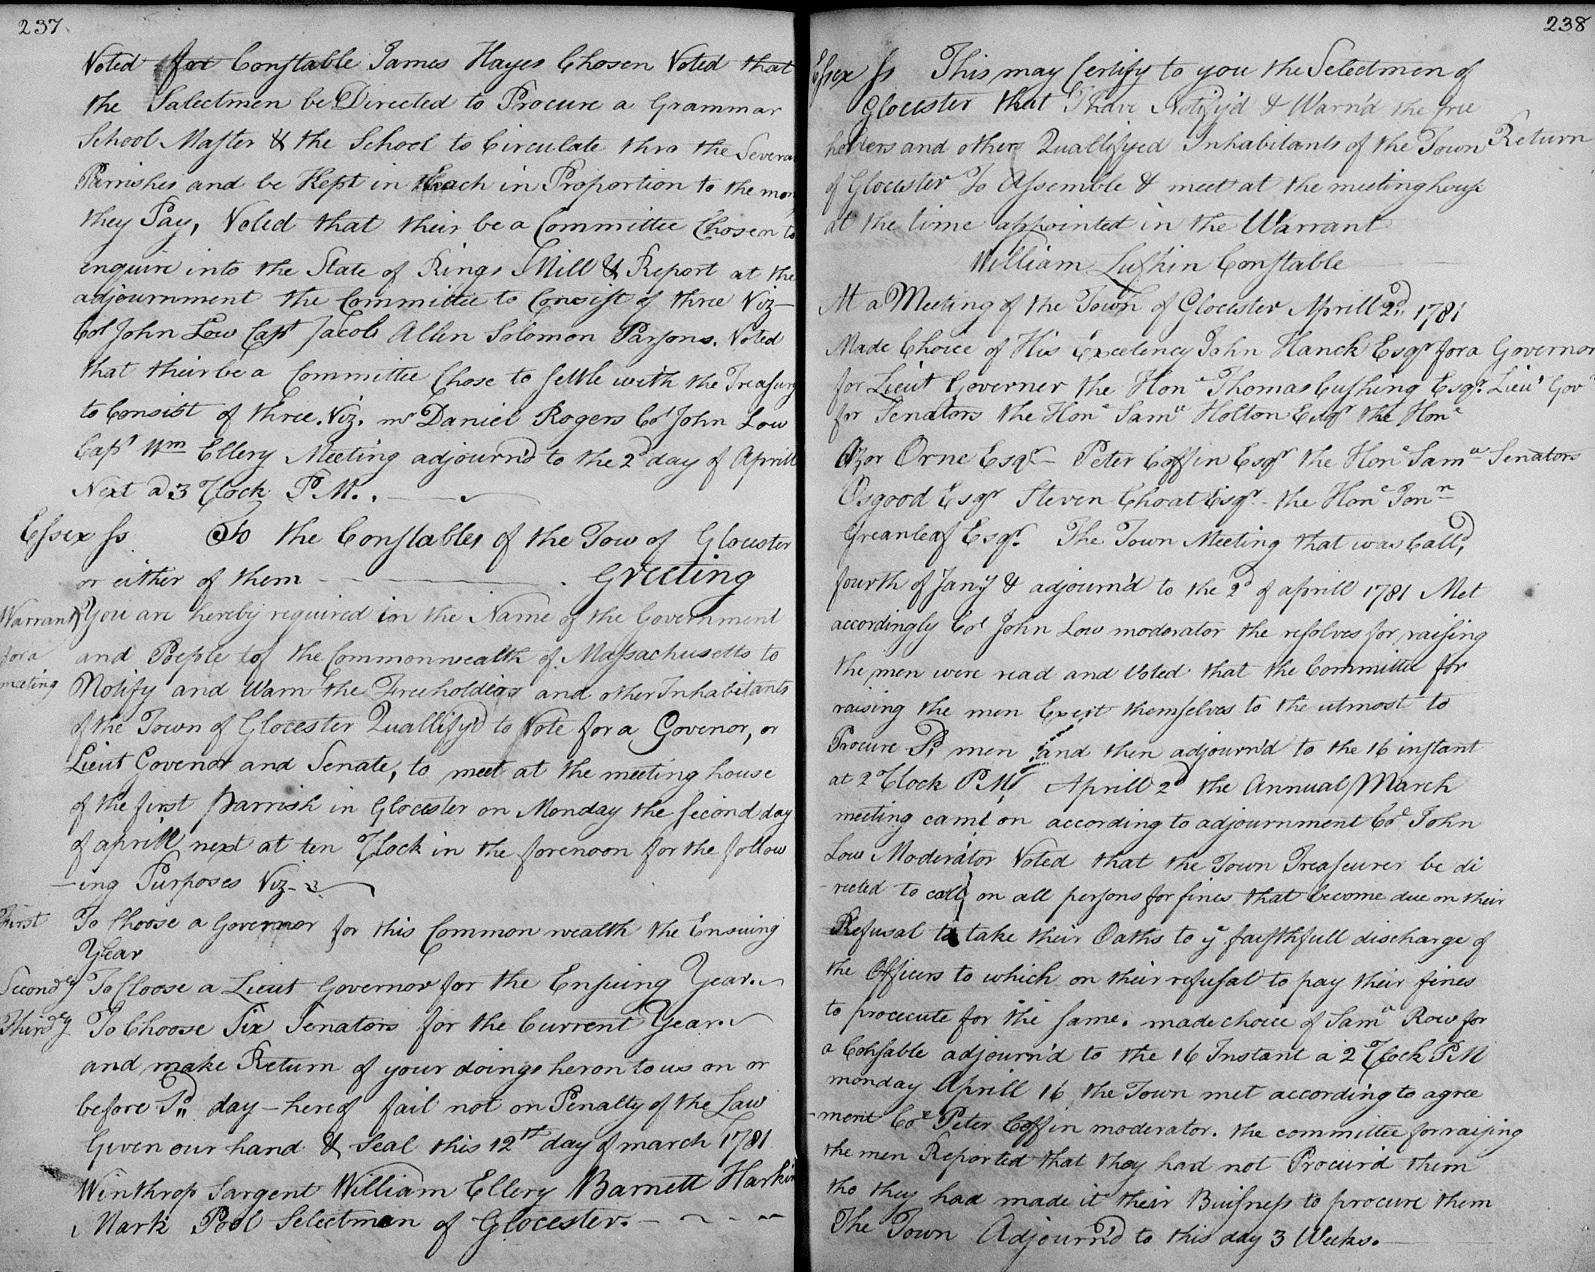 237
Voted for Constable James Hayes Chosen Voted that
the Salectmen be Directed to Procure a Grammar
School Master & the School to Circulate thro the Severa
Parrishes and be Kept in Each in Proportion to the mon
they Pay, Voted that their be a Committee Chosen to
enquire into the State of Rings Mill & Report at the
adjournment the Committee to Consist of three Viz
Col John Low Capt Jacob Allen Solomon Parsons. Voted
that their be a Committee Chose to settle with the Treasury
to Consist of three. Viz. mr Daniel Rogers Col John Low
Capt Wm Ellery Meeting adjournd to the 2d day of Aprill
Next a 3 Clock P.M.
Essex ss To the Constables of the Tow of Glocester
or either of them Greeting
Warrant You are hereby required in the Name of the Government
for a and Poeple of the Commonwealth of Massachusetts to
meeting Notify and Warn the Freeholders and other Inhabitants
of the Town of Glocester Quallify'd to Vote for a Govenor, or
Lieut Govenor and Senate, to meet at the meeting house
of the first Parrish in Glocester on Monday the second day
of aprill next at ten Clock in the forenoon for the follow
-ing Purposes Viz
First To Choose a Governor for this Common wealth the Ensuing
Year
Secondly To Cloose a Lieut Governor for the Ensuing Year.
Thirdly To Choose Six Senators for the Current Year.
and make Return of your doings heron to us on or
before Sd day - hereof fail not on Penalty of the Law
Given our hand & Seal this 12th day of march 1781
Winthrop Sargent William Ellery Barnett Harkin
Mark Pool Selectmen of Glocester.
238
Essex ss This may Certify to you the Selectmen of
Glocester that I have Notify'd & Warn'd the free
holders and others Quallifyed Inhabitants of the Town Return
of Glocester To Assemble & meet at the meeting house
at the time appointed in the Warrant
William Lufkin Constable
At a Meeting of the Town of Glocester Aprill 2d. 1781
Made Choice of His Excelency John Hanck Esqr for a Governor
for Lieut Governer the Hone Thomas Cushing Esqr. Lieut Govr
for Senators the Hone Saml Holton Esqr the Hone
Azor Orne Esqr - Peter Coffin Esqr the Hone Saml Senators
Osgood Esqr Steven Choat Esqr - the Hone Jonn
Greanleaf Esqr. The Town Meeting that was Calld,
fourth of Jany & adjourn'd to the 2d of aprill 1781 Met
accordingly Col John Low moderator the resolves for raising
the men were read and Voted that the Committee for
raising the men Exert themselves to the utmost to
Procure Sd men and then adjourn'd to the 16 instant
at 2 Clock PM Aprill 2d the Annual March
meeting came on according to adjournment Col John
Low Moderator Voted that the Town Treasurer be di
-rected to call on all persons for fines that become due on their
Refusal to take their Oaths to ye faisthfull discharge of
the Officers to which on their refusal to pay their fines
to procecute for the same. made choice of Saml Row for
a Consable adjourn'd to the 16 Instant a 2 Clock PM
monday Aprill 16 the Town met according to agree
-ment Col Peter Coffin moderator. the committee for raising
the men Reported that they had not Procur'd them
tho they had made it their Buisness to procure them
The Town Adjournd to this day 3 Weeks.